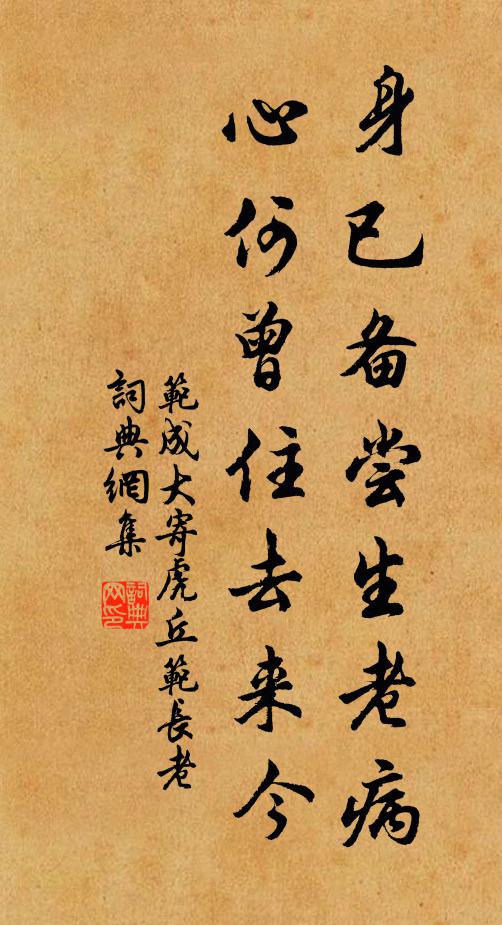 身已备尝生老病
心何曾住去来今
範成大寄虎丘範長老
詞典網集
詞典网印